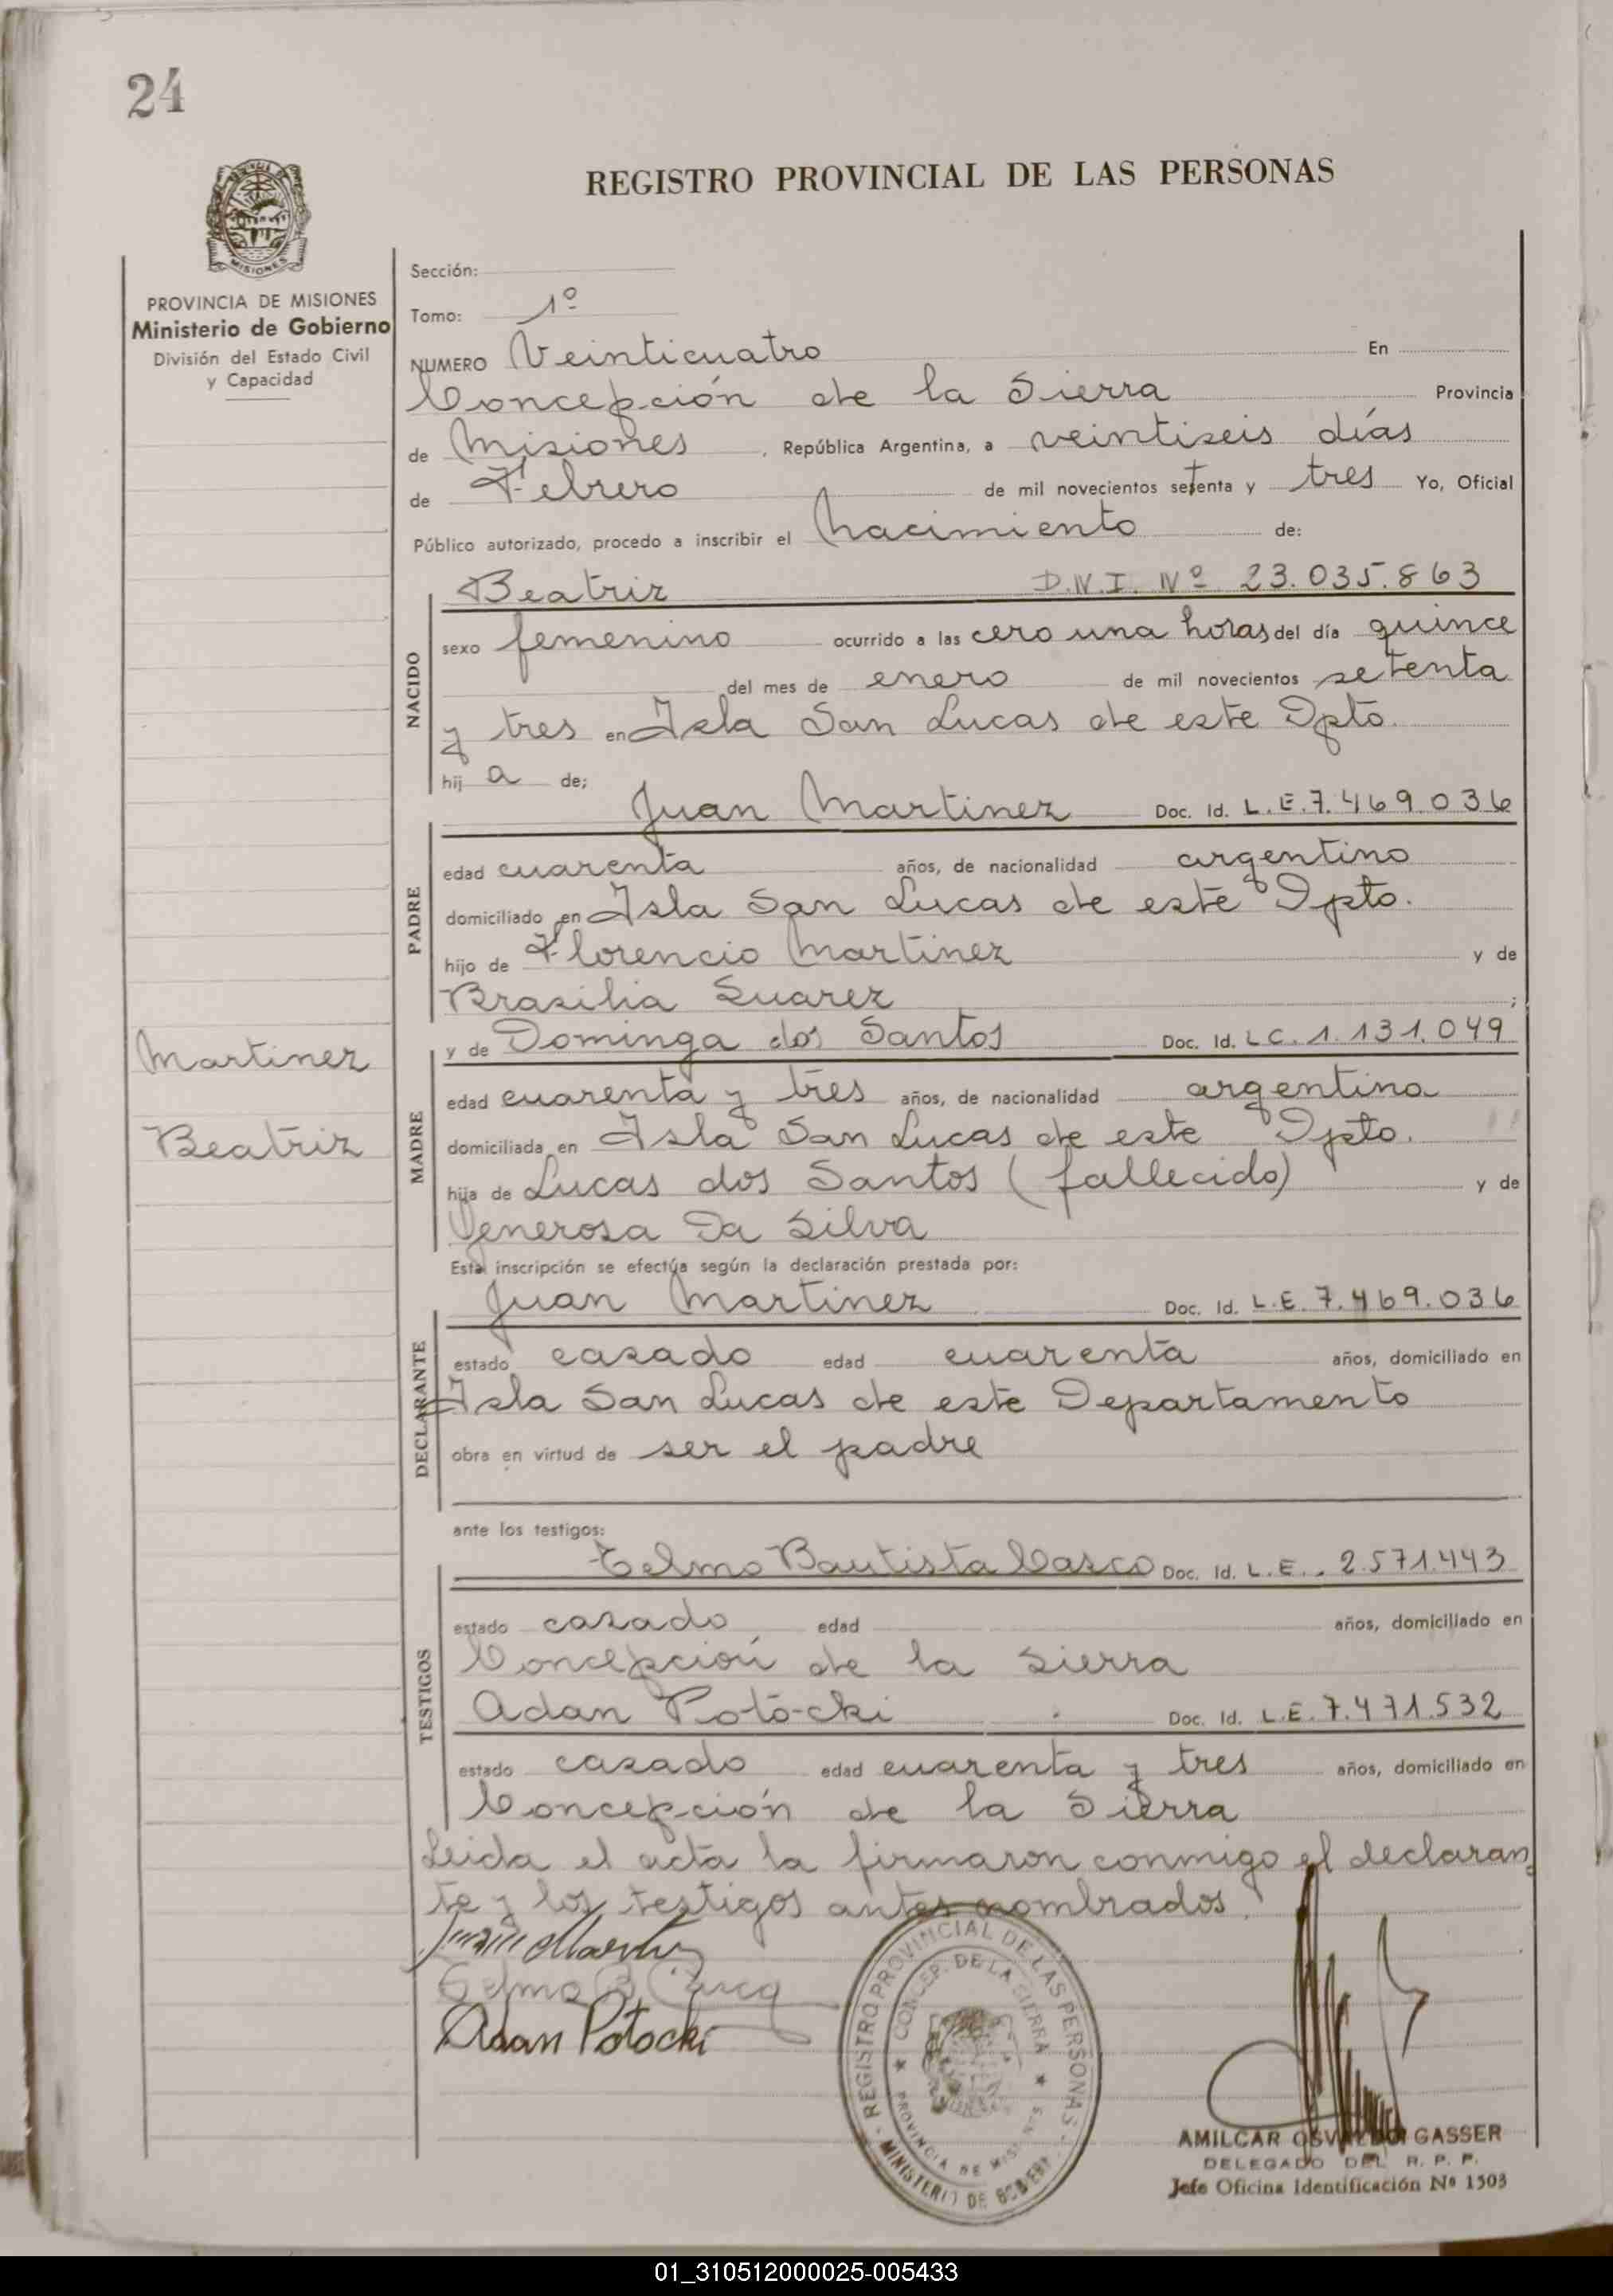 24
REGISTRO PROVINCIAL DE LAS PERSONAS
MISIONES
PROVINCIA DE MISIONES
Ministerio de Gobierno
División del Estado Civil
y Capacidad
Sección:
Tomo: 1º
NUMERO Veinticuatro En
Concepción de la Sierra Provincia
de Misiones, República Argentina, a veintiseis días
de Febrero de mil novecientos setenta y tres Yo, Oficial
Público autorizado, procedo a inscribir el Nacimiento de:
NACIDO
Beatriz D.N.I. Nº 23.035.863
sexo femenino ocurrido a las cero una horas del día quince
del mes de enero de mil novecientos setenta
y tres en Isla San Lucas de este Dpto.
hij a de;
PADRE
Juan Martinez Doc. Id. L.E. 7.469.036
edad cuarenta años, de nacionalidad argentino
domiciliado en Isla San Lucas de este Dpto.
hijo de Florencio Martinez y de
Brasilia Suarez ;
Martinez
Beatriz
MADRE
y de Dominga dos Santos Doc. Id. L.C. 1.131.049
edad cuarenta y tres años, de nacionalidad argentina
domiciliada en Isla San Lucas de este Dpto.
hija de Lucas dos Santos (fallecido) y de
Generosa Da Silva
Esta inscripción se efectúa según la declaración prestada por:
DECLARANTE
Juan Martinez Doc. Id. L.E. 7.469.036
estado casado edad cuarenta años, domiciliado en
Isla San Lucas de este Departamento
obra en virtud de ser el padre
ante los testigos:
TESTIGOS
Telmo Bautista Casco Doc. Id. L.E. 2.571.443
estado casado edad años, domiciliado en
Concepción de la Sierra
Adan Potocki Doc. Id. L.E. 7.471.532
estado casado edad cuarenta y tres años, domiciliado en
Concepción de la Sierra
Leida el acta la firmaron conmigo el declaran
te y los testigos antes nombrados.
Juan Martinez
Telmo B. Casco
Adan Potocki
REGISTRO PROVINCIAL DE LAS PERSONAS
CONCEP. DE LA SIERRA
PROVINCIA DE MISIONES
MINISTERIO DE GOBIERNO
AMILCAR OSVALDO GASSER
DELEGADO DEL R. P. P.
Jefe Oficina Identificación Nº 1503
01_310512000025-005433